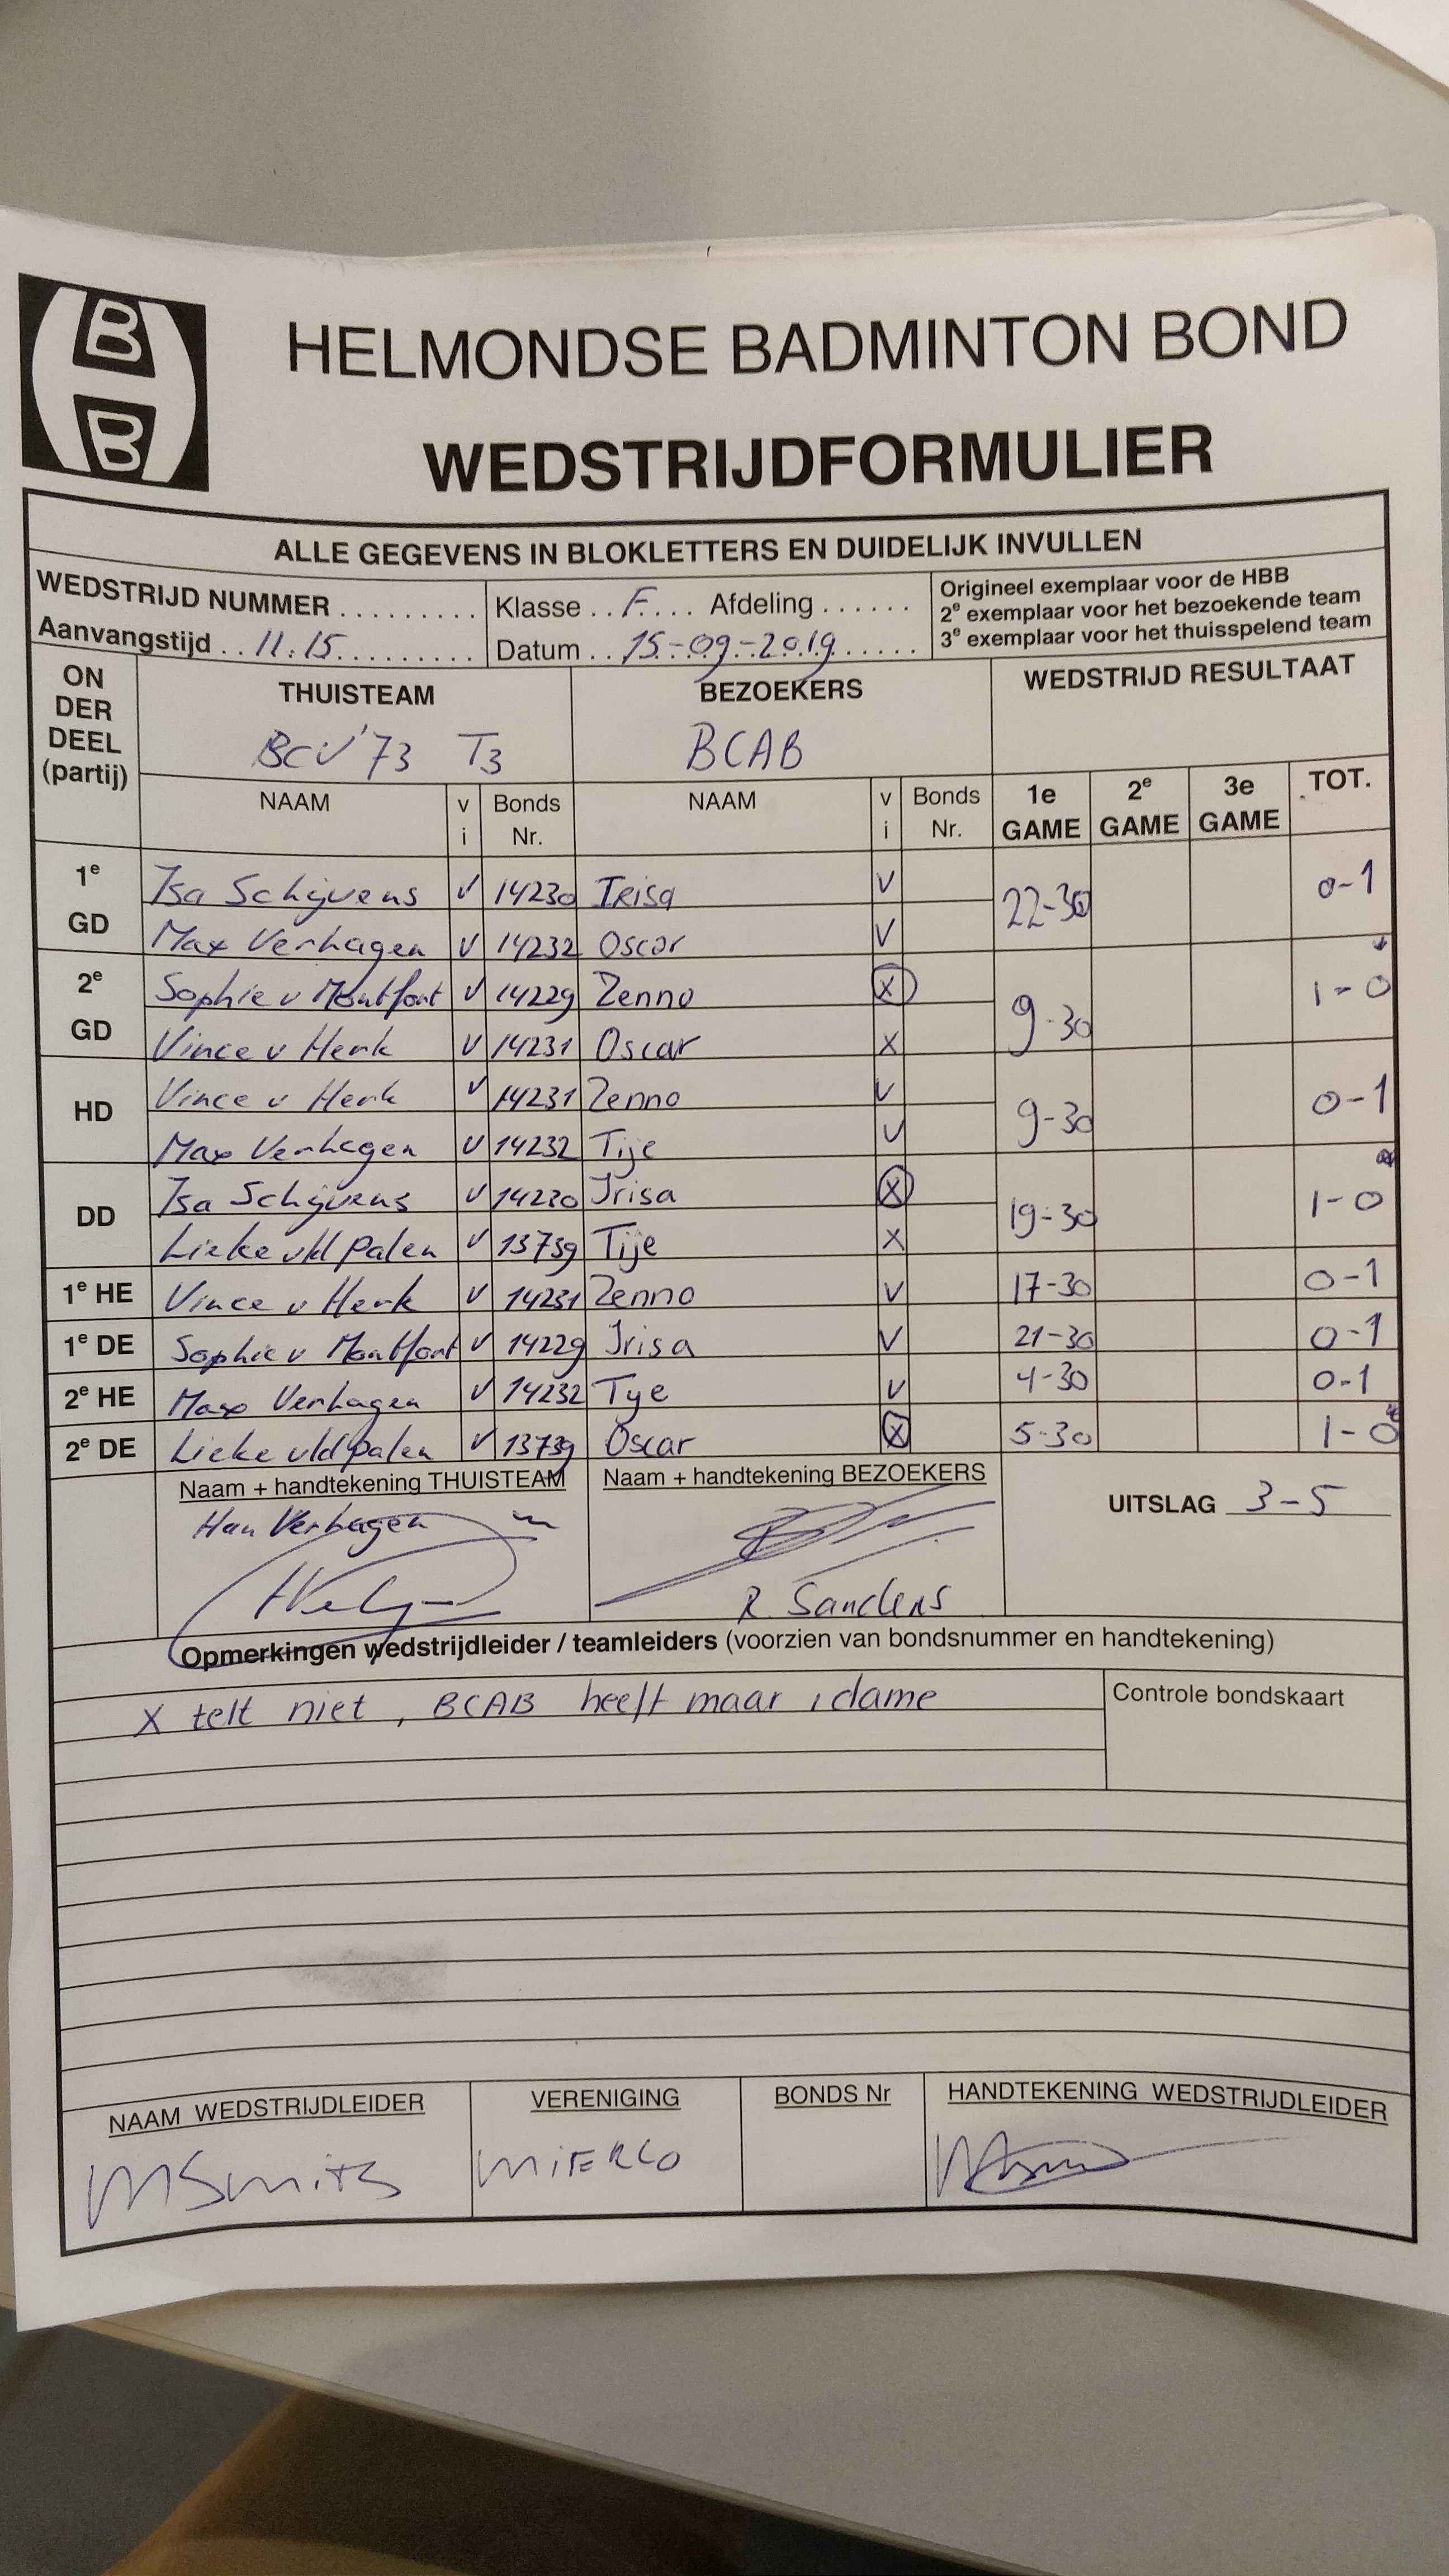 B
B
HELMONDSE BADMINTON BOND
WEDSTRIJDFORMULIER
ALLE GEGEVENS IN BLOKLETTERS EN DUIDELIJK INVULLEN
WEDSTRIJD NUMMER .......... Klasse .. F .... Afdeling ...... Origineel exemplaar voor de HBB
2e exemplaar voor het bezoekende team
Aanvangstijd .. 11.15 ......... Datum .. 15-09-2019 ..... 3e exemplaar voor het thuisspelend team
ON DER DEEL (partij) THUISTEAM BEZOEKERS WEDSTRIJD RESULTAAT
BCV'73 T3 BCAB
NAAM v i Bonds Nr. NAAM v i Bonds Nr. 1e GAME 2e GAME 3e GAME TOT.
1e GD Isa Schijvens v 14230 Irisa v 22-30 0-1
Max Verhagen v 14232 Oscar v
2e GD Sophie v Montfort v 14229 Zenno x 9-30 1-0
Vince v Herk v 14231 Oscar x
HD Vince v Herk v 14231 Zenno v 9-30 0-1
Max Verhagen v 14232 Tije v
DD Isa Schijvens v 14230 Irisa x 19-30 1-0
Lieke vld Palen v 13739 Tije x
1e HE Vince v Herk v 14231 Zenno v 17-30 0-1
1e DE Sophie v Montfort v 14229 Irisa v 21-30 0-1
2e HE Max Verhagen v 14232 Tye v 4-30 0-1
2e DE Lieke vld Palen v 13739 Oscar x 5-30 1-0
Naam + handtekening THUISTEAM Naam + handtekening BEZOEKERS UITSLAG 3-5
Han Verhagen
R. Sanders
Opmerkingen wedstrijdleider / teamleiders (voorzien van bondsnummer en handtekening)
X telt niet, BCAB heeft maar 1 dame Controle bondskaart
NAAM WEDSTRIJDLEIDER VERENIGING BONDS Nr HANDTEKENING WEDSTRIJDLEIDER
MSmits MiERLO